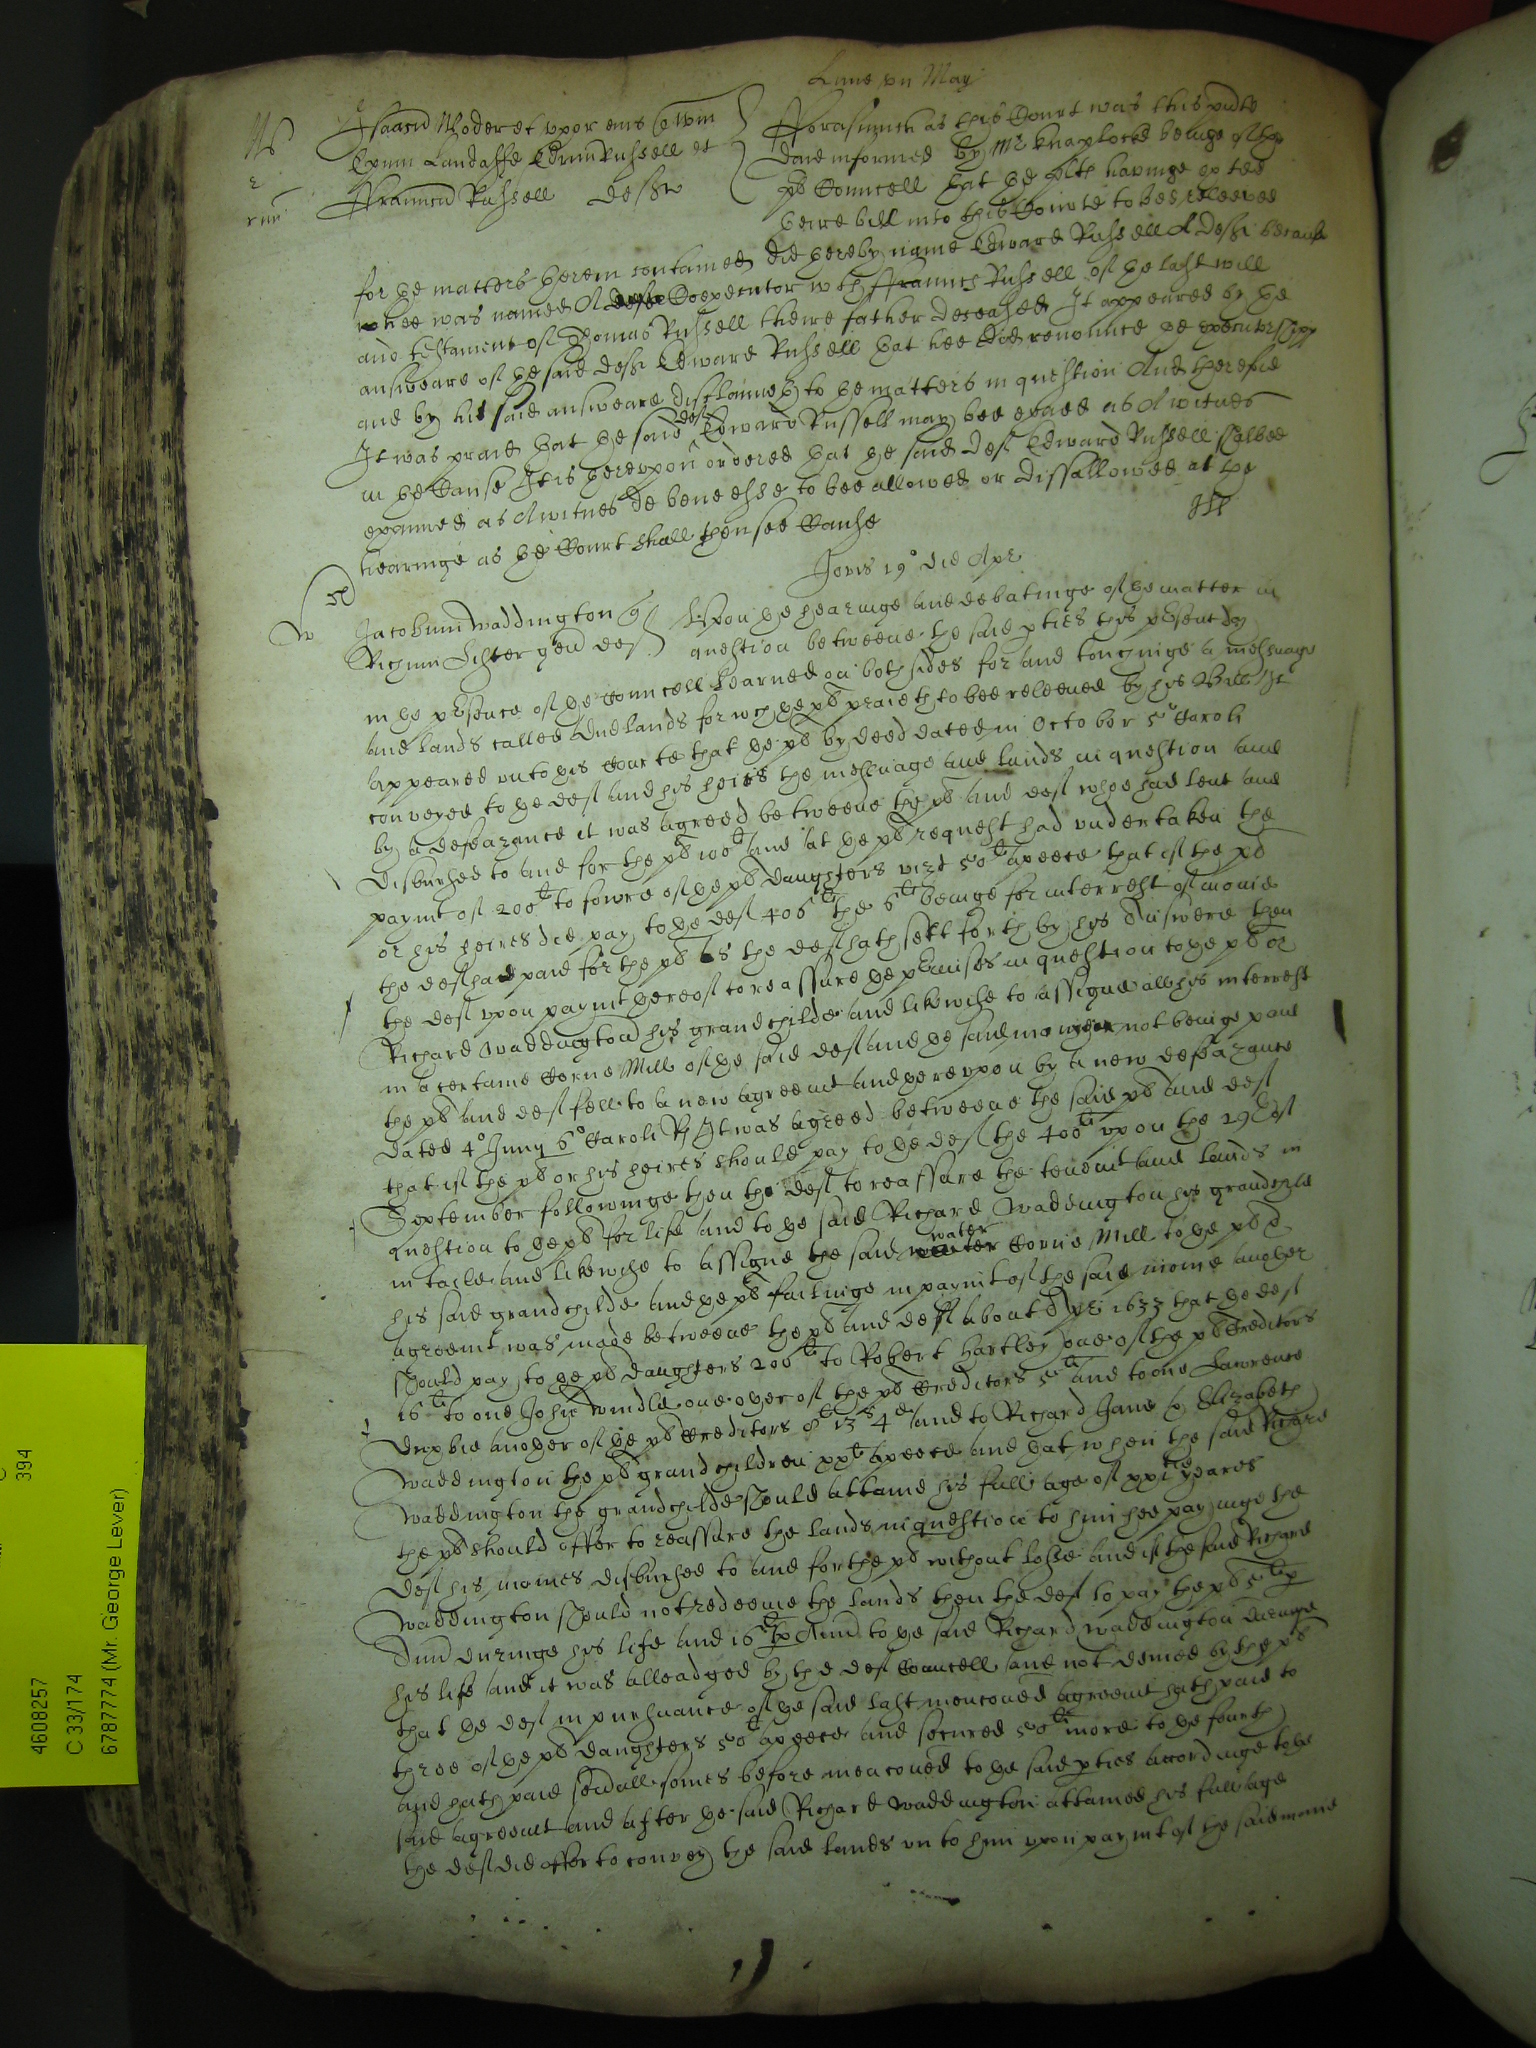 Lune vii May
Isaacū Woder et uxor eius Quer
Exūm Landaffe Edrūm Russell et
Francū Russell Defte
Forasmuch as this Court was this pnte
daie informed by Mr Knaplocke beinge of the
pls Councell that the plts havinge exted
theire bill into this Courte to bee releeved
for the matters therein contained did thereby name Edward Russell A deft because
hee was named A Coexecutor wth Frauncis Russell of the last will
and testament of Thomas Russell theire father deceased It appeared by the
answeare of the said deft Edward Russell that hee did renounce the executrshipp
and by his said answeare disclaimeth to the matters in question And therefore
It was praied that the said deft Edward Russell may bee exaed as A witnes
in the Cause It is thereupon ordered that the said deft Edward Russell shalbee
examined as A witnes de bene esse to bee allowed or dissallowed at the
hearinge as the Court shall then see Cause
Jovis 19° die Apr
Jacobum Waddington q
Richūm Lister gen def
Upon the hearinge and debatinge of the matter in
question betweene the said pties this psent day
in the psence of the Councell learned on both sides for and touchinge a messuage
and lands called lands for wch the pl praieth to bee releeved by his Bill It
appeared unto this Courte that the pl by deed dated in October 5° Caroli
conveyed to the deft and his heires the messuage and lands in question and
by a defeazance it was agreed betweene the pl and deft whoe had lent and
disbursed to and for the pl 100li and at the pls request had undertaken the
paymt of 200li to fowre of the pls daughters vizt 50li apeece that if the pl
or his heires did pay to the deft 406li the 6li beinge for interrest of monie
the deft had paid for the pl As the deft hath sett forth by his Answere then
the deft upon paymt thereof to reassure the pmises in question to the pl or
Richard Waddington his grandchilde and likewise to assigne all his interrest
in a certaine Corne Mill of the said deft and the said monyes not beinge paid
the pl and deft fell to a new agreemt and thereupon by a new defeazance
dated 4° Juny 6° Caroli R It was agreed betweene the said pl and deft
that if the pl or his heires should pay to the deft the 400li upon the 29th of
September followinge then the deft to reassure the tenemt and lands in
question to the pl for life and to the said Richard Waddington his grandchilde
in taile and likewise to assigne the said water Corne Mill to the pl &
his said grandchilde and the pl failinge in paymt of the said monie another
agreemt was made betweene the pl and deft about Apr 1633 that the deft
should pay to the pls daughters 200li to Robert Hartley one of the pls Creditors
16li to one John Windle one other of the pls Creditors 5li and to one Lawrence
another of the pls Creditors 8li 13s 4d and to Richard Jane & Elizabeth
Waddington the pls grandchildren xxli apeece and that when the said Richard
Waddington the grandchilde should attaine his full age of xxi yeares
the pl should offer to reassure the lands in question to him hee payinge the
deft his monies disbursed to and for the pl without losse and if the said Richard
Waddington should not redeeme the lands then the deft to pay the pl 5li p
Annu duringe his life and 16li p Annu to the said Richard Waddington duringe
his life and it was alleadged by the defts Councell and not denied by the pl
that the deft in pursuance of the said last menconed agreemt hath paid to
three of the pls daughters 50li apeece and secured 50li more to the fourth
and hath paid sevrall somes before menconed to the said pties accordinge to the
said agreemt and after the said Richard Waddington attained his full age
the deft did offer to convey the said lands unto him upon paymt of the said monie
394
4608257
C 33/174
6787774 (Mr. George Lever)